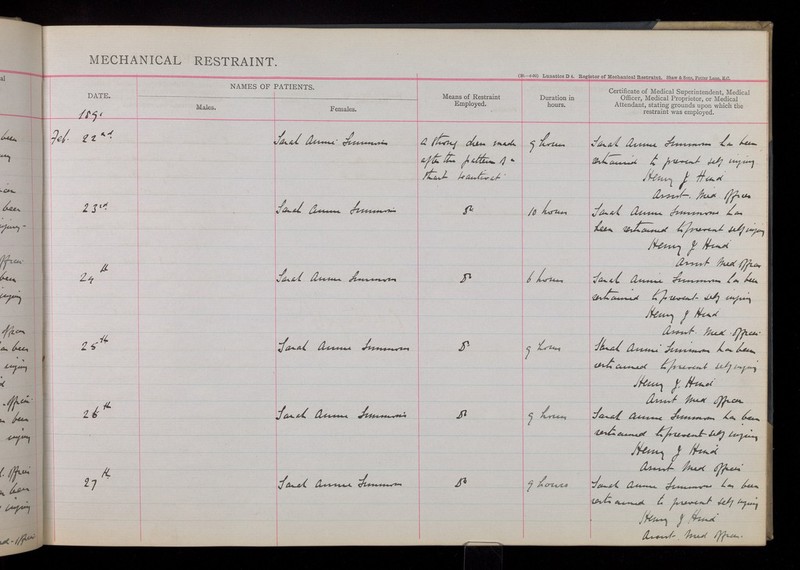 MECHANICAL RESTRAINT.
Lunatics D 4. Register of Mechanical Restraint. Shaw & Sons, Fetter Lane, E.C.
DATE.
NAMES OF PATIENTS.
Males.
Females.
Means of Restraint
Employed.
Duration in
hours.
Certificate of Medical Superintendent, Medical
Officer, Medical Proprietor, or Medical
Attendant, stating grounds upon which the
restraint was employed.
189
Feb. 22nd Sarah Annie Simmons A strong dress made 9 hours Sarah Annie Simmons has been
after the pattern of a restrained to prevent self injury
strait waistcoat Henry J Hind
Assist. Med Officer
23rd Sarah Annie Simmons Do 10 hours Sarah Annie Simmons has
been restrained to prevent self injury
Henry J Hind
Assist Med Officer
24th Sarah Annie Simmons Do 6 hours Sarah Annie Simmons has been
restrained to prevent self injury
Henry J Hind
Assist Med Officer
25th Sarah Annie Simmons Do 9 hours Sarah Annie Simmons has been
restrained to prevent self injury
Henry J. Hind
Assist Med Officer
26th Sarah Annie Simmons Do 9 hours Sarah Annie Simmons has been
restrained to prevent self injury
Henry J Hind
Assist Med Officer
27th Sarah Annie Simmons Do 9 hours Sarah Annie Simmons has been
restrained to prevent self injury
Henry J Hind
Assist Med Officer